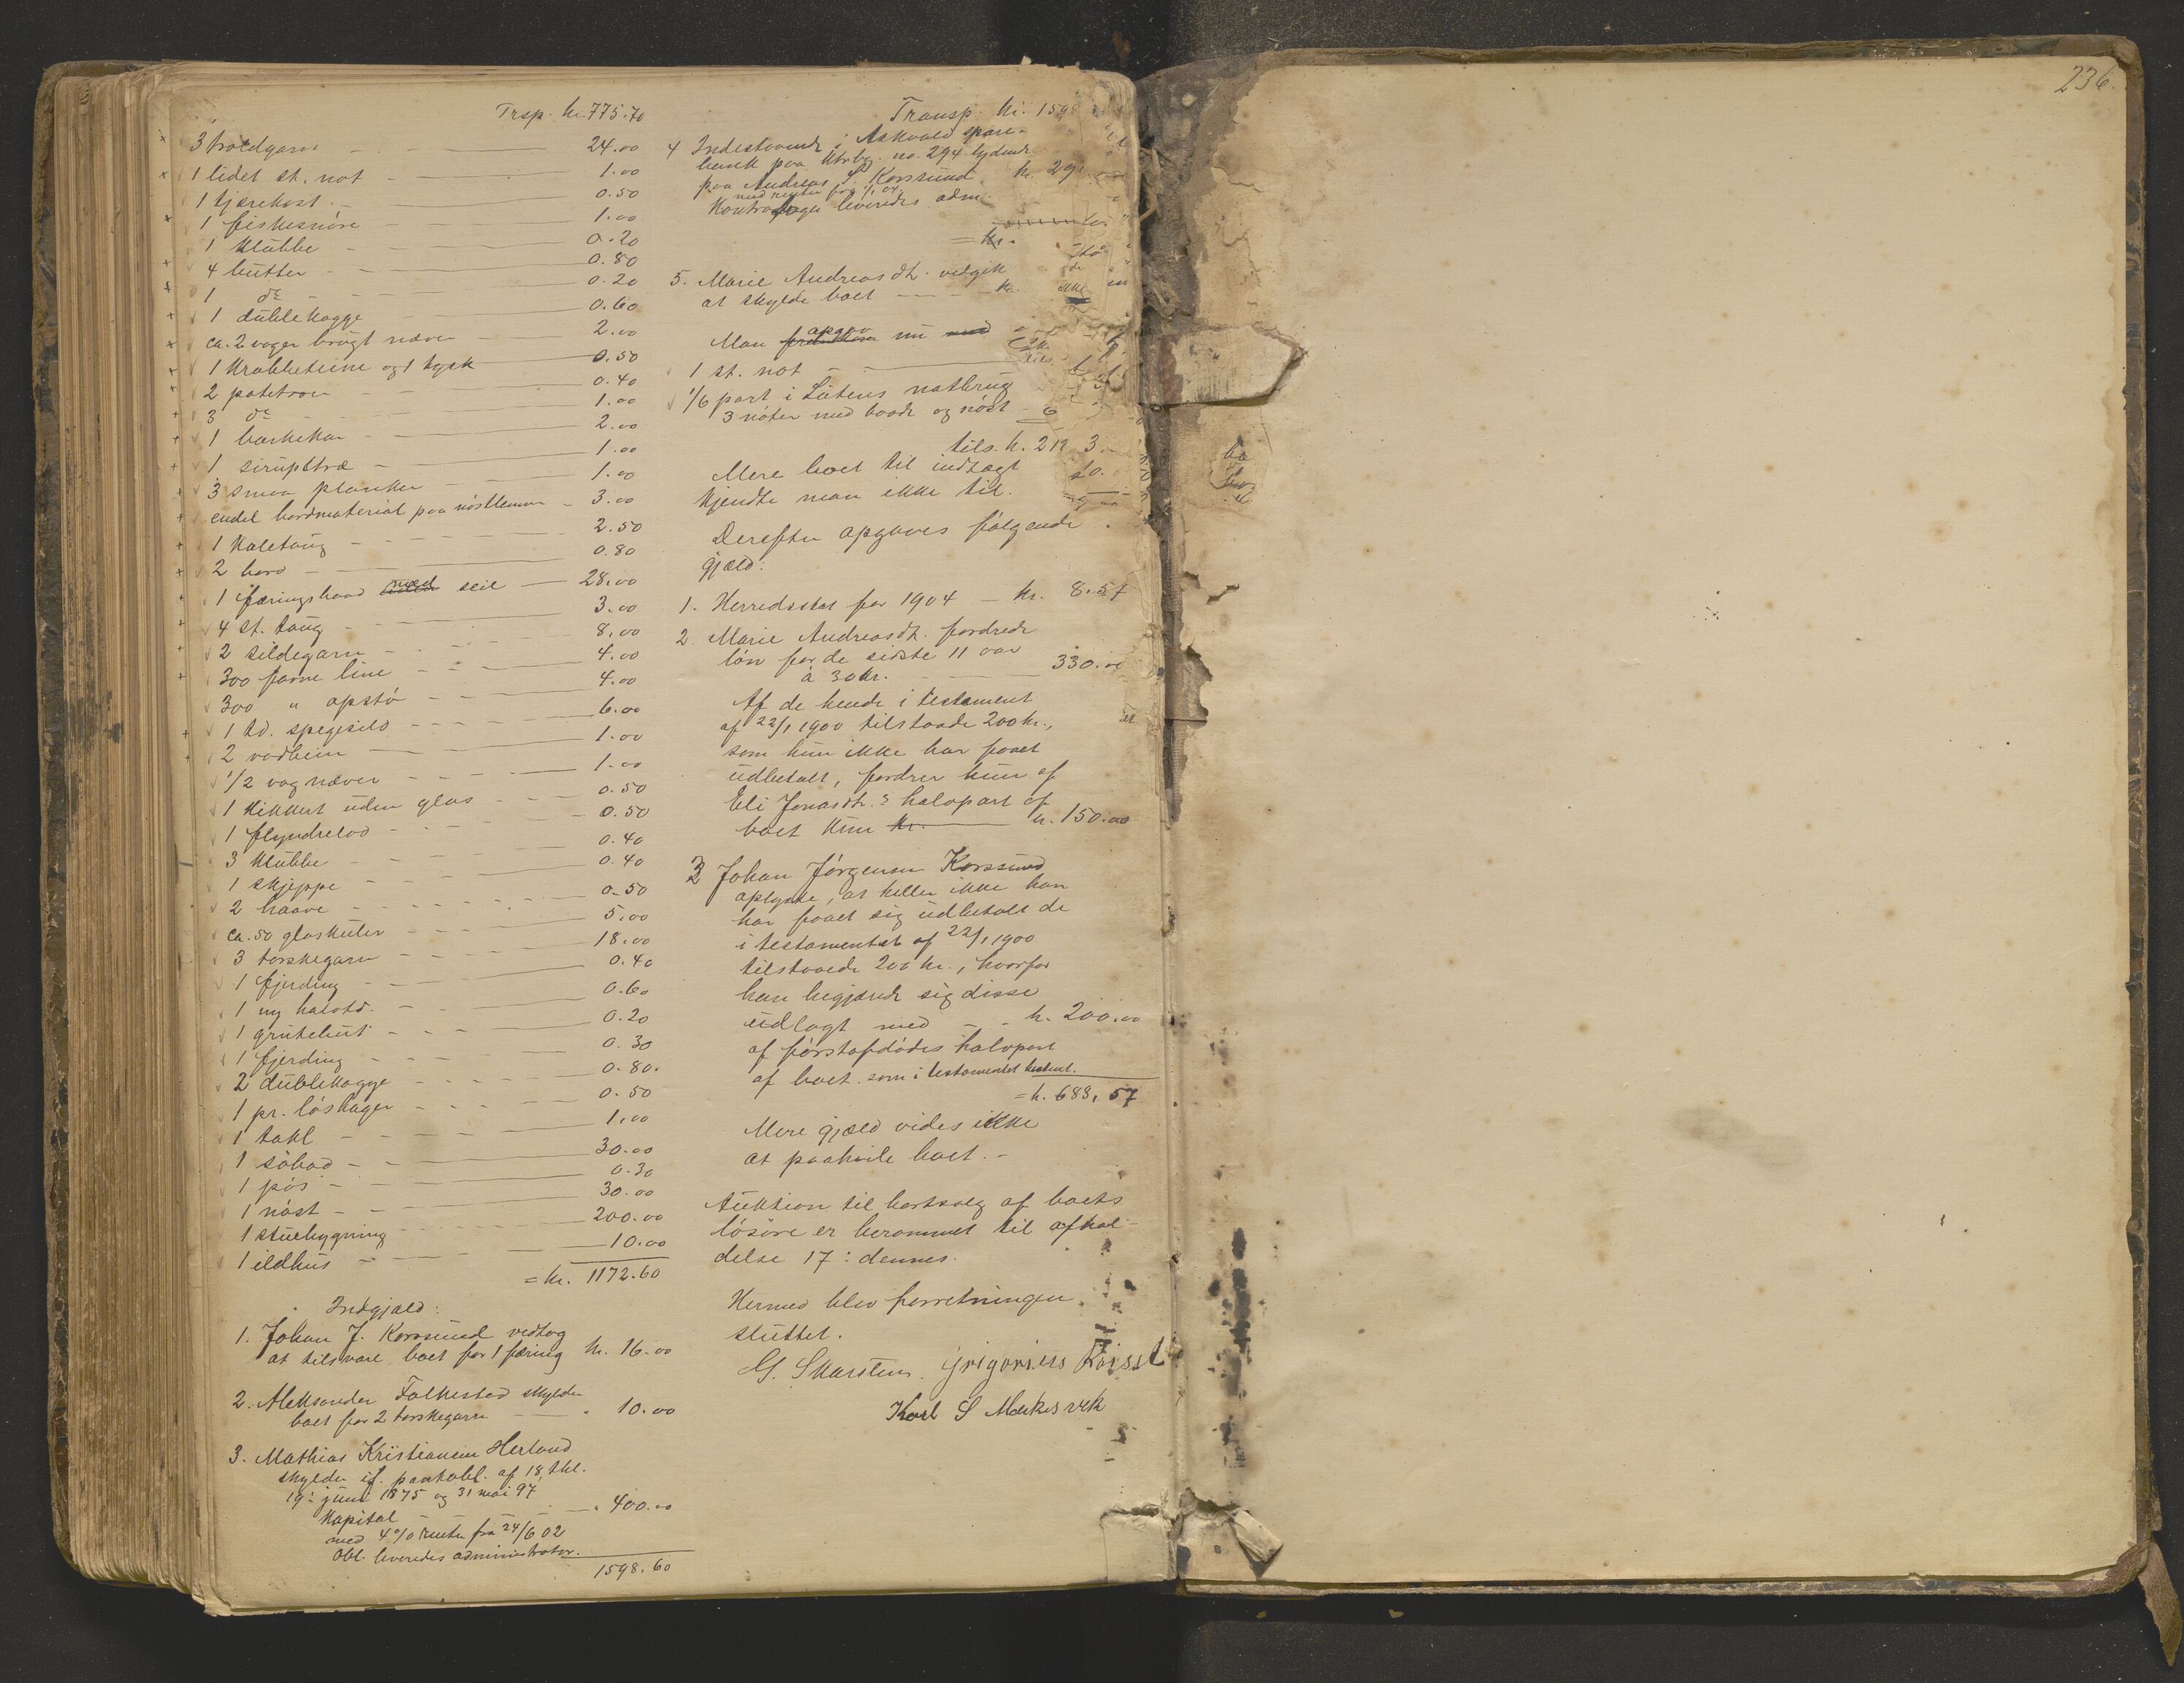 Trsp. kr. 775.70
3 troldgarn 24.00
1 lidet st. not 1.00
1 tjærekost 0.50
1 fiskesnöre 1.00
1 klubbe 0.20
4 bütter 0.80
1 do 0.20
1 dübblekagge 0.60
ca. 2 voger brügt næver 2.00
1 krabbeteine og 1 tysk 0.50
2 potetron 0.40
3 do 1.00
1 barkekar 2.00
1 sirüpstræ 1.00
3 smaa planker 1.00
endel bordmaterial paa nöstlemmen 3.00
1 kaletoüg 2.50
2 bord 0.80
1 færingsbaad med seil 28.00
4 st. toüg 3.00
2 sildegarn 8.00
300 favne line 4.00
300 " opstö 4.00
1 td. spegesild 6.00
2 vadbein 1.00
1/2 vog næver 1.00
1 kikkert üden glas 0.50
1 flyndrelod 0.50
3 klübbe 0.40
1 skjeppe 0.40
2 haave 0.50
ca. 50 glaskuler 5.00
3 torskegarn 18.00
1 fjerding 0.40
1 ny halvtd. 0.60
1 grütebüt 0.20
1 fjerding 0.30
2 dübblekagge 0.80
1 pr. löshager 0.50
1 takl 1.00
1 söbod 30.00
1 pós 0.30
1 nöst 30.00
1 stuebygning 200.00
1 ildhüs 10.00
= kr. 1172.60
Indgjæld:
1. Johan J. Korssund vedtog
at tilsvare boet for 1 færing kr. 16.00
2. Aleksander Folkestad skylder
boet for 2 torskegarn " 10.00
3. Mathias Kristiansen Herland
skylder if. pantobl. af 18, thl.
19: jüni 1875 og 31 mai 97
Kapital " 400.00
med 4% rente fra 24/6 02
Obl. leveredes administrator.
1598.60
Transp. kr. 1598
4 Indestaaende i Askvold spare-
bank paa Ktrbg. no. 294 lydende
paa Andreas S Korssund kr. 29
med renter fra 1/1 04.
Kontrabogen leveredes adm.
= kr.
5. Marie Andreasdt. vedgik
at skylde boet kr.
Man opgav nu
1 st. not
1/6 part i Lütens notbrüg
3 nöter med baade og nöst 6
tils. kr. 212
Mere boet til indtægt
kjendte man ikke til.
Derefter opgaves fölgende
gjæld:
1. Herredsskat for 1904 kr. 8.57
2. Marie Andreasdt. fordrede
lön for de sidste 11 aar
à 30 kr. 330.00
Af de hende i testament
af 22/1 1900 tilstaaede 200 kr.,
som hun ikke har faaet
udbetalt, fordrer hun af
Eli Jonasdt.s halvpart af
boet kun kr. 150.00
3 Johan Jörgensen Korssund
oplyste, at heller ikke han
har faaet sig udbetalt de
i testamentet af 22/1 1900
tilstaaede 200 kr., hvorfor
han begjærede sig disse
udlagt med kr. 200.00
af förstafdödes halvpart
af boet som i testamentet bestemt.
= kr. 688,57
Mere gjæld vides ikke
at paahvile boet.-
Auktion til bortsalg af boets
lösöre er berammet til afhol-
delse 17: dennes.
Hermed blev forretningen
slüttet.
G. Skarsten. Grigorius
Karl S
236.